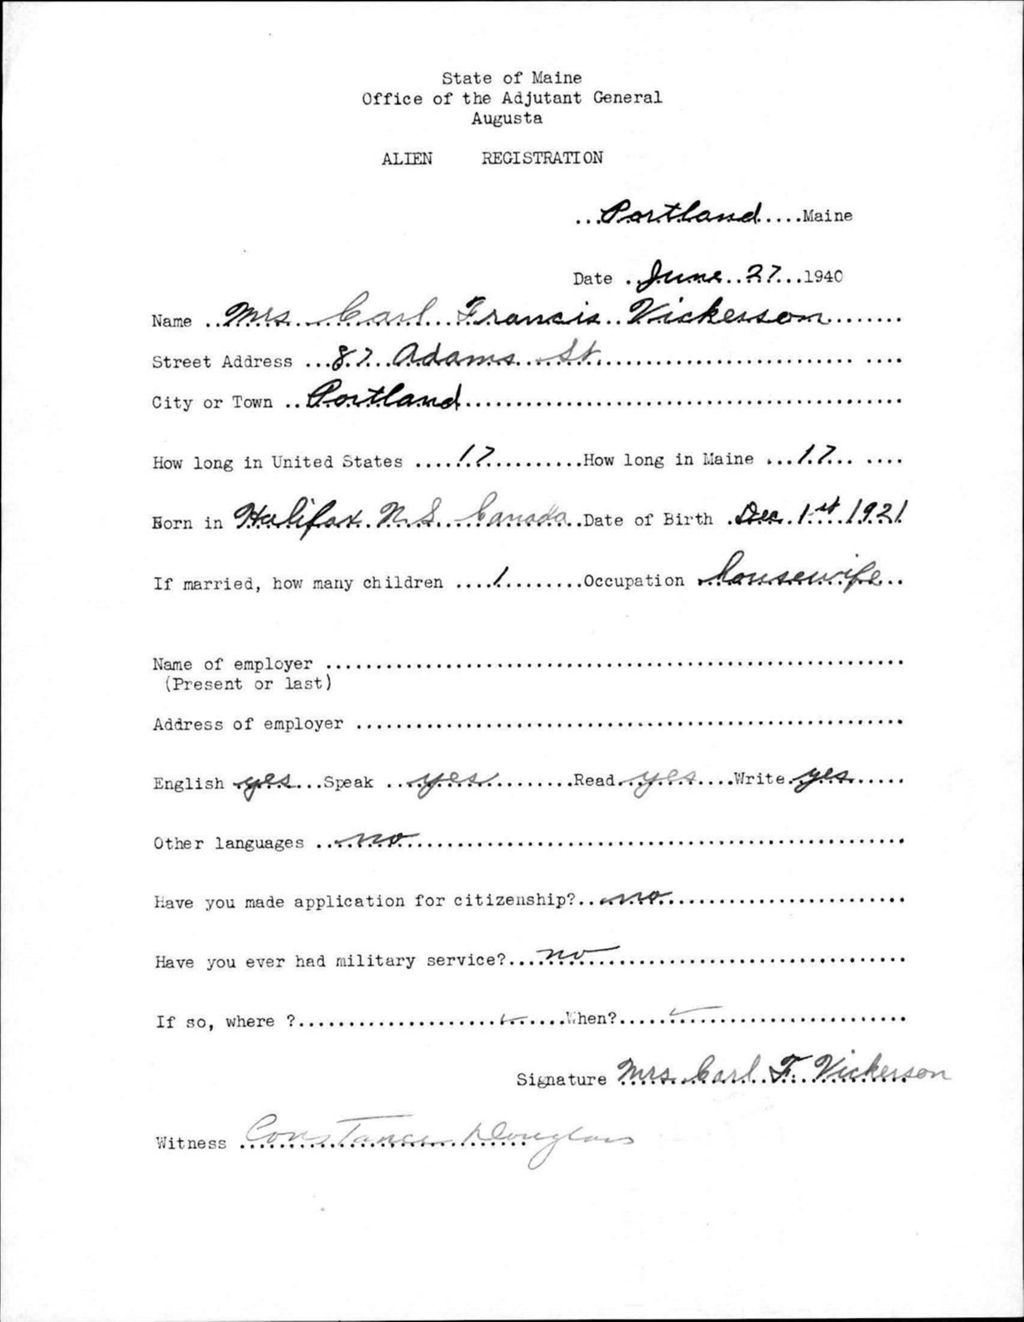 State of Maine
Office of the Adjutant General
Augusta
ALIEN REGISTRATION
..Portland....Maine
Date .June..27...1940
Name ..Mrs...Carl..Francis..Vickerson.......
Street Address ...87..Adams..St.............................. ....
City or Town ..Portland............................................
How long in United States ....17..........How long in Maine ...17... ....
Born in Halifax.N.S...Canada..Date of Birth .Dec.1st.1921
If married, how many children ....1........Occupation .housewife..
Name of employer ..........................................................
(Present or last)
Address of employer .......................................................
English yes...Speak ..yes.........Read.yes....Write.yes.....
Other languages ..no..................................................
Have you made application for citizenship?..no........................
Have you ever had military service?...no...............................
If so, where ?....................✓......When?.....✓......................
Signature Mrs. Carl. F. Vickerson
Witness Constance Douglass